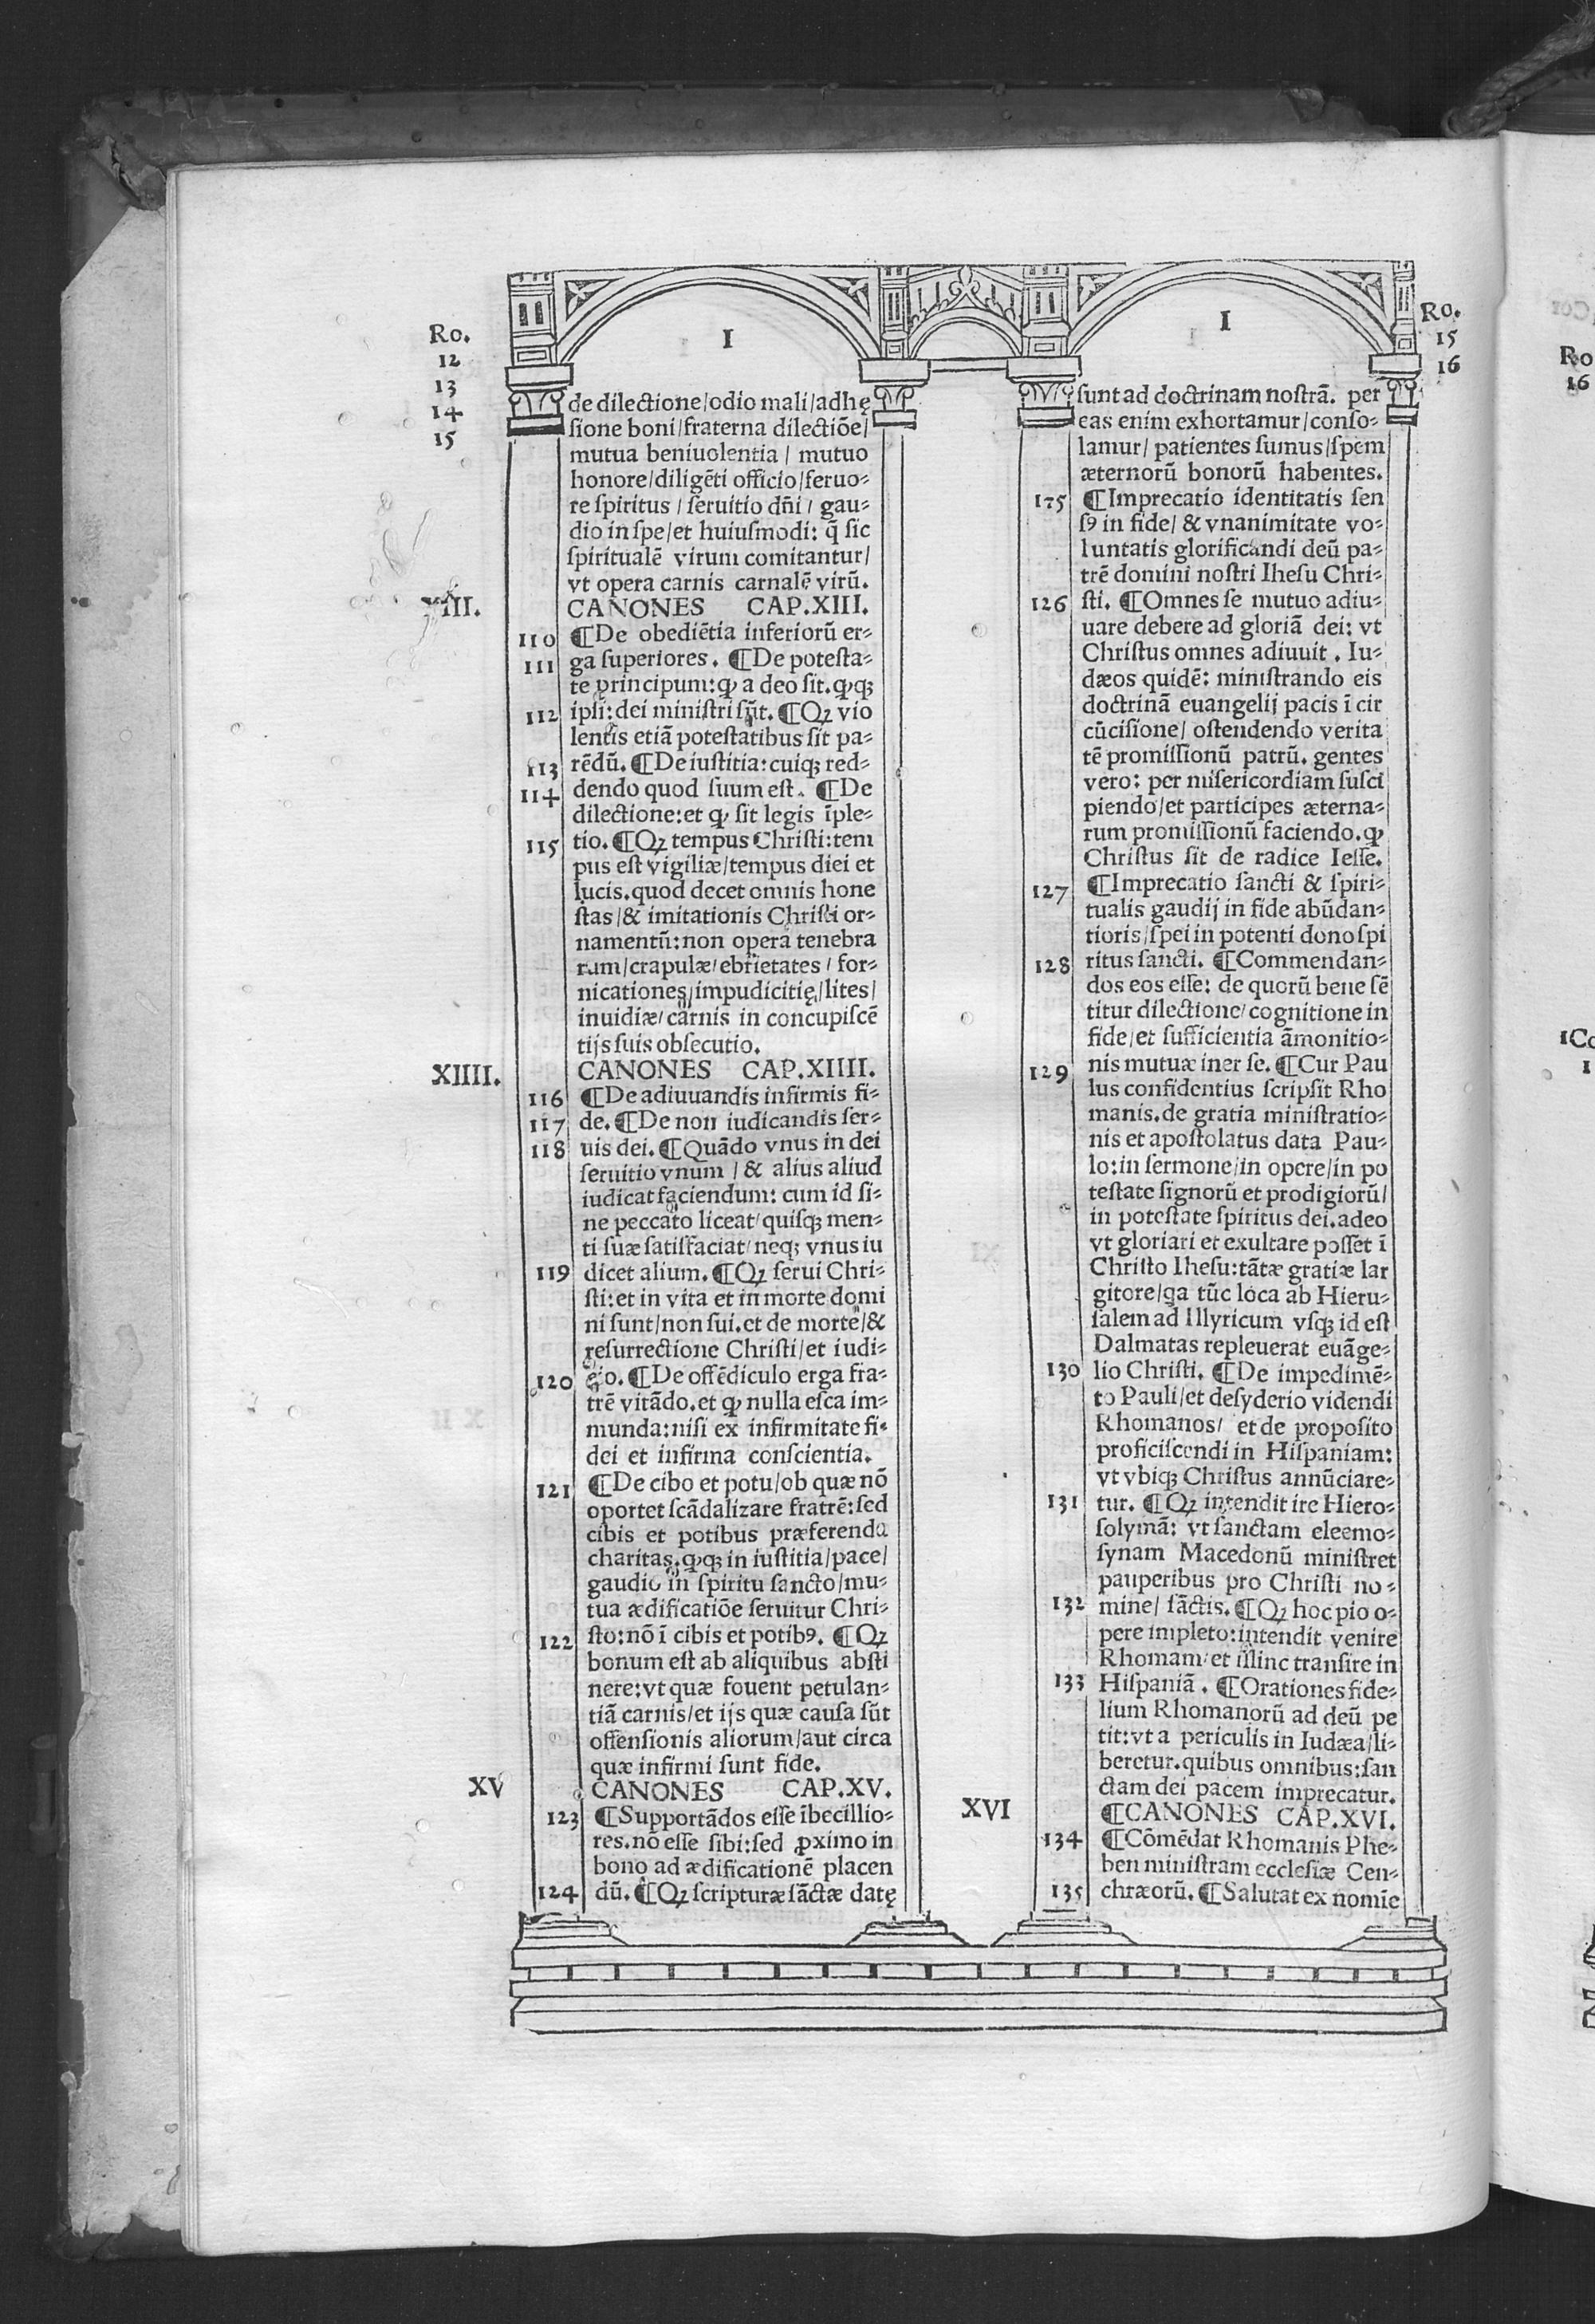 Ro.
12
13
14
15
I
de dilectione/odio mali/adhę
sione boni/fraterna dilectiōe/
mutua beniuolentia / mutuo
honore/diligēti officio/feruo-
re spiritus / seruitio dn̄i / gau-
dio in spe/et huiusmodi: q̄ sic
spiritualē virum comitantur/
vt opera carnis carnalē virū.
XIII. CANONES CAP.XIII.
110 ¶De obediētia inferiorū er-
111 ga superiores. ¶De potesta-
te principum: ꝙ a deo sit. ꝙꝗ
112 ipsi: dei ministri sūt. ¶Qꝫ vio
lentis etiā potestatibus sit pa-
113 rēdū. ¶De iustitia: cuiqꝫ red-
114 dendo quod suum est. ¶De
dilectione: et ꝙ sit legis īple-
115 tio. ¶Qꝫ tempus Christi: tem
pus est vigiliæ/tempus diei et
lucis. quod decet omnis hone
stas /& imitationis Christi or-
namentū: non opera tenebra
rum/crapulæ/ebrietates / for-
nicationes/impudicitię/lites/
inuidiæ/carnis in concupiscē
tijs suis obsecutio.
XIIII. CANONES CAP.XIIII.
116 ¶De adiuuandis infirmis fi-
117 de. ¶De non iudicandis ser-
118 uis dei. ¶Quādo vnus in dei
seruitio vnum / & alius aliud
iudicat faciendum: cum id si-
ne peccato liceat/quisqꝫ men-
ti suæ satisfaciat/neqꝫ vnus iu
119 dicet alium. ¶Qꝫ serui Chri-
sti: et in vita et in morte domi
ni sunt/non sui. et de morte/&
resurrectione Christi/et iudi-
120 cio. ¶De offēdiculo erga fra-
trē vitādo. et ꝙ nulla esca im-
munda: nisi ex infirmitate fi-
dei et infirma conscientia.
121 ¶De cibo et potu/ob quæ nō
oportet scādalizare fratrē: sed
cibis et potibus præferenda
charitas. ꝙqꝫ in iustitia/pace/
gaudio in spiritu sancto/mu-
tua ædificatiōe seruitur Chri-
122 sto: nō ī cibis et potibꝰ. ¶Qꝫ
bonum est ab aliquibus absti
nere: vt quæ fouent petulan-
tiā carnis/et ijs quæ causa sūt
offensionis aliorum/aut circa
quæ infirmi sunt fide.
XV CANONES CAP.XV.
123 ¶Supportādos esse ībecillio-
res. nō esse sibi: sed ꝓximo in
bono ad ædificationē placen
124 dū. ¶Qꝫ scripturæ sāctæ datę
Ro.
15
16
I
sunt ad doctrinam nostrā. per
eas enim exhortamur/conso-
lamur/ patientes sumus/spem
æternorū bonorū habentes.
175 ¶Imprecatio identitatis sen
sꝰ in fide/ & vnanimitate vo-
luntatis glorificandi deū pa-
trē domini nostri Ihesu Chri-
126 sti. ¶Omnes se mutuo adiu-
uare debere ad gloriā dei: vt
Christus omnes adiuuit. Iu-
dæos quidē: ministrando eis
doctrinā euangelij pacis ī cir
cūcisione/ ostendendo verita
tē promissionū patrū. gentes
vero: per misericordiam susci
piendo/et participes æterna-
rum promissionū faciendo. ꝙ
Christus sit de radice Iesse.
127 ¶Imprecatio sancti & spiri-
tualis gaudij in fide abūdan-
tioris/spei in potenti dono spi
128 ritus sancti. ¶Commendan-
dos eos esse: de quorū bene sē
titur dilectione/cognitione in
fide/et sufficientia āmonitio-
129 nis mutuæ iner se. ¶Cur Pau
lus confidentius scripsit Rho
manis. de gratia ministratio-
nis et apostolatus data Pau-
lo: in sermone/in opere/in po
testate signorū et prodigiorū/
in potestate spiritus dei. adeo
vt gloriari et exultare posset ī
Christo Ihesu: tātæ gratiæ lar
gitore/qa tūc loca ab Hieru-
salem ad Illyricum vsqꝫ id est
Dalmatas repleuerat euāge-
130 lio Christi. ¶De impedimē-
to Pauli/et desyderio videndi
Rhomanos/ et de proposito
proficiscendi in Hispaniam:
vt vbiqꝫ Christus annūciare-
131 tur. ¶Qꝫ intendit ire Hiero-
solymā: vt sanctam eleemo-
synam Macedonū ministret
pauperibus pro Christi no-
132 mine/ sāctis. ¶Qꝫ hoc pio o-
pere impleto: intendit venire
Rhomam/et illinc transire in
133 Hispaniā. ¶Orationes fide-
lium Rhomanorū ad deū pe
tit: vt a periculis in Iudæa/li-
beretur. quibus omnibus: san
ctam dei pacem imprecatur.
XVI ¶CANONES CAP.XVI.
134 ¶Cōmēdat Rhomanis Phe-
ben ministram ecclesiæ Cen-
135 chræorū. ¶Salutat ex nomīe
Ro
16
1Co
1